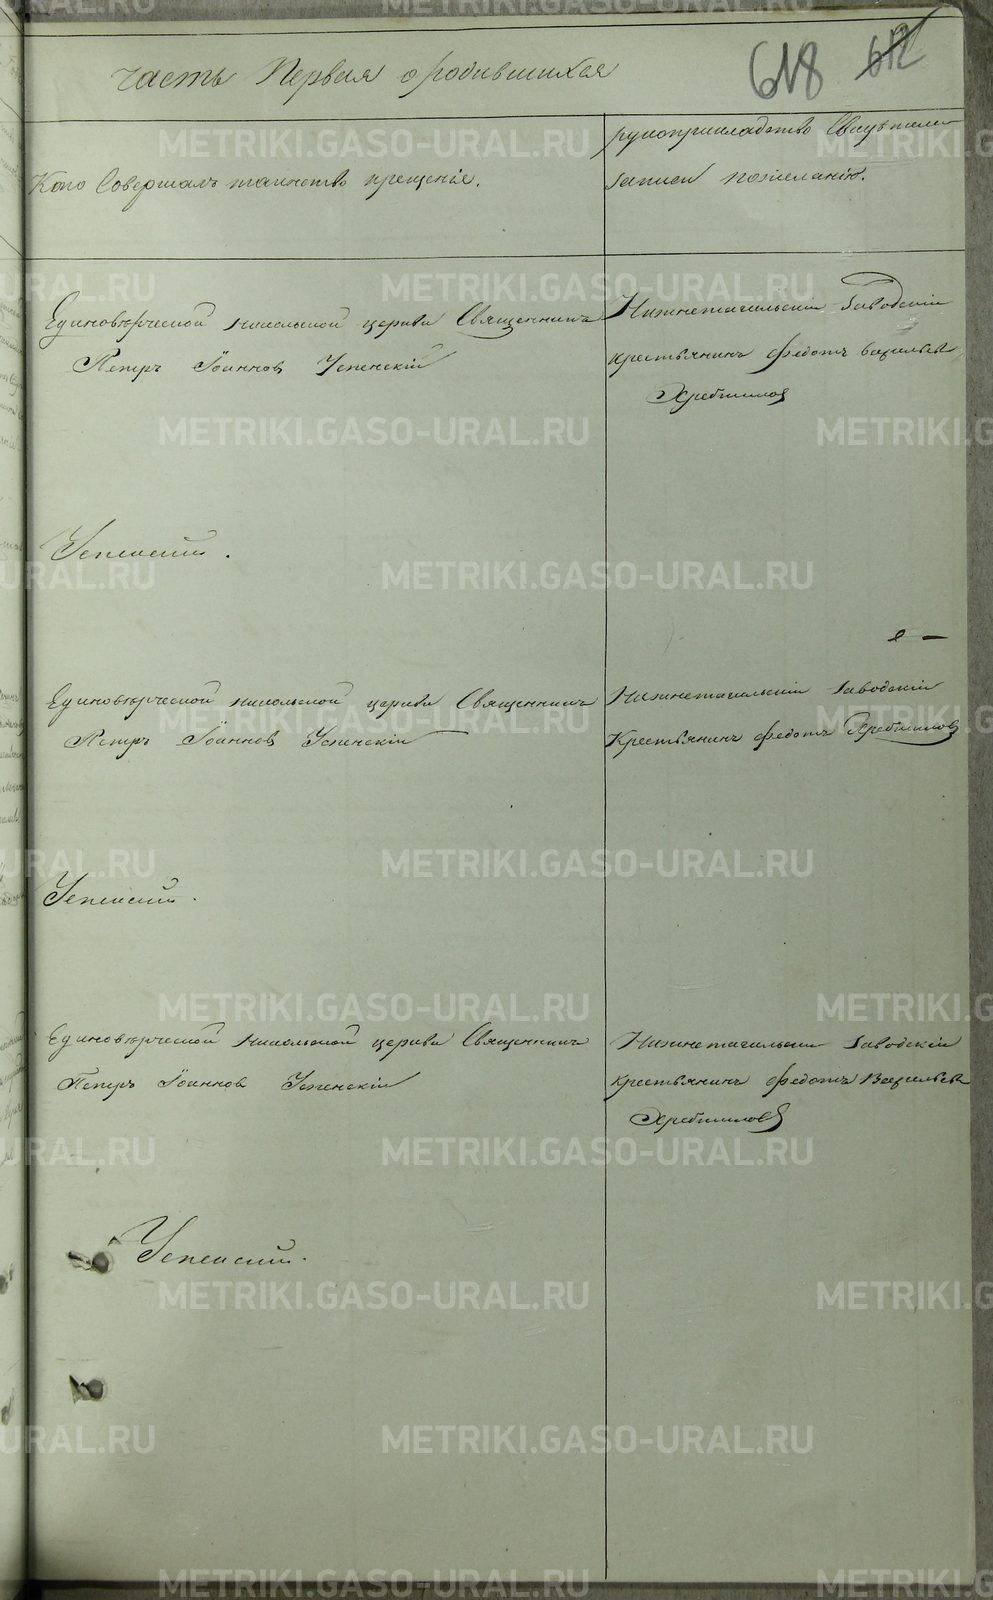 Часть Первая о родившихся
618
612
Кто Совершалъ таинство крещенія.
рукоприкладство Свидѣтелей
записи по желанію.
Единовѣрческой Никольской церкви Священникъ
Петръ Іоанновъ Успенскій
Нижнетагильскій Заводскій
крестьянинъ Федотъ Васильевъ
Успенский.
Единовѣрческой Никольской церкви Священникъ
Петръ Іоанновъ Успенскій
Нижнетагильскій Заводскій
Крестьянинъ Федотъ
Успенский.
Единовѣрческой Никольской церкви Священникъ
Петръ Іоанновъ Успенскій
Нижнетагильскій Заводскій
крестьянинъ Федотъ Васильевъ
Успенский.
METRIKI.GASO-URAL.RU